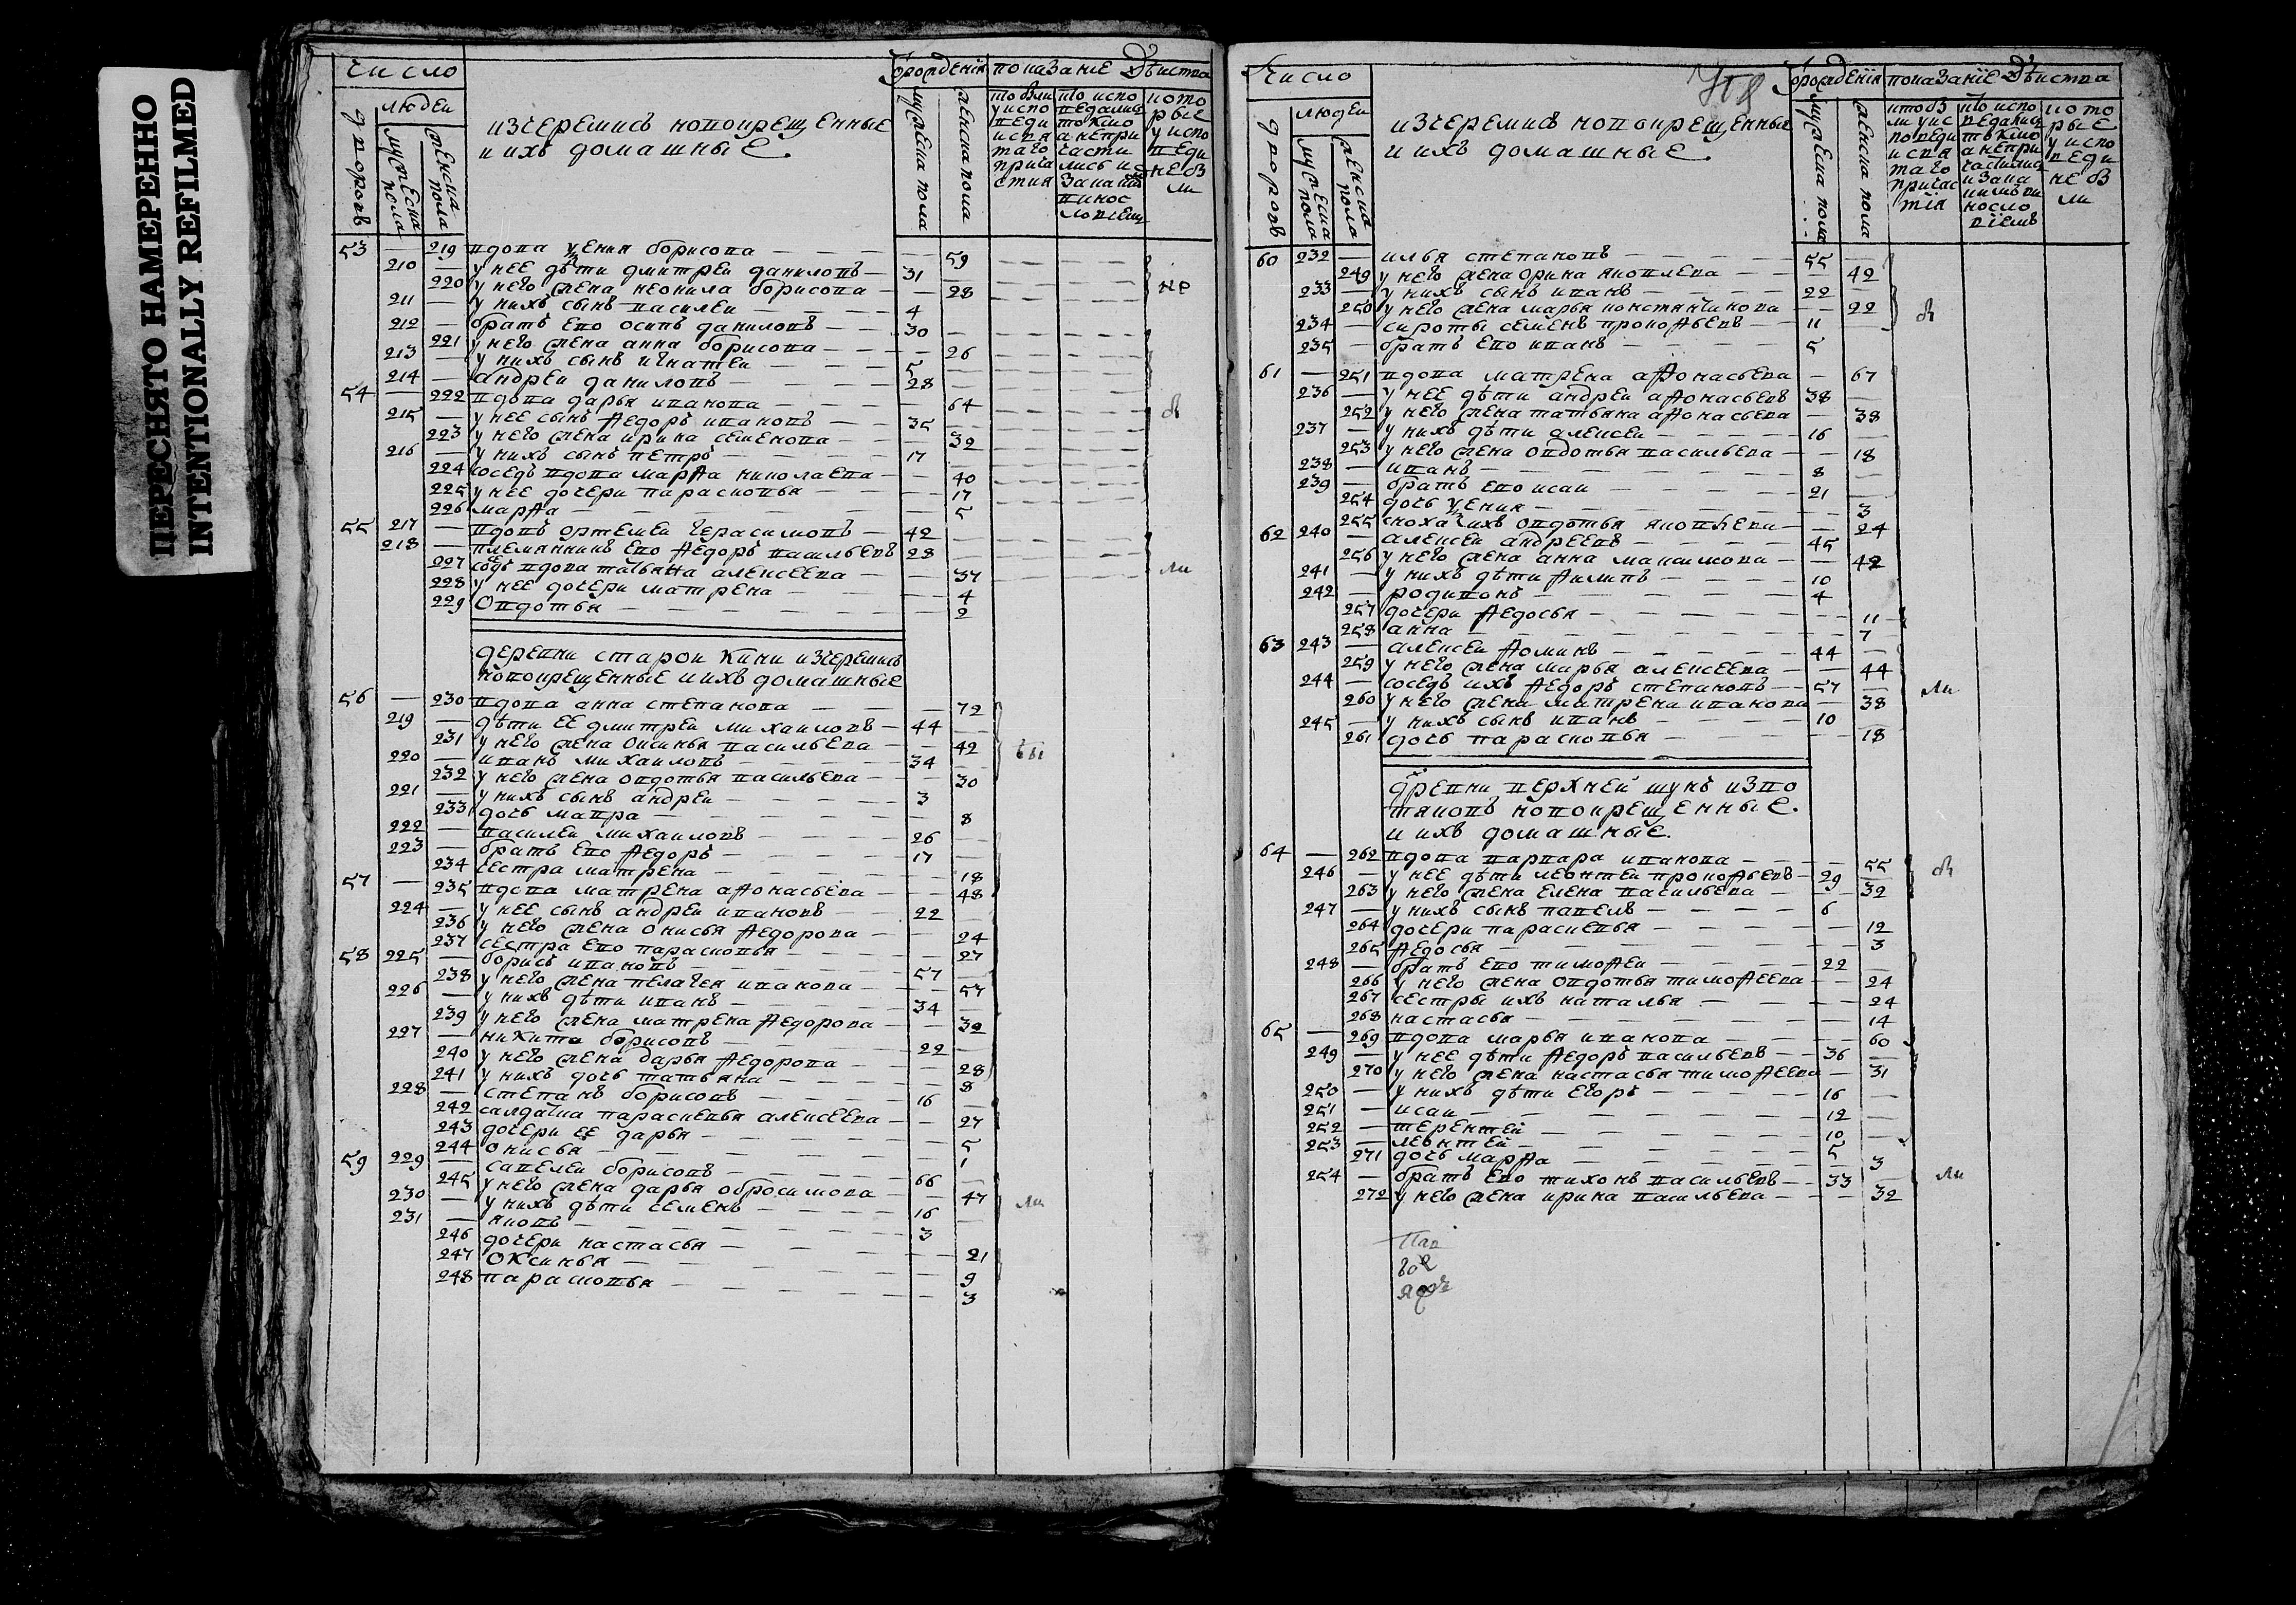 ПЕРЕСНЯТО НАМЕРЕННО
INTENTIONALLY REFILMED
Число
людеи
дворовъ
мужеска пола
женска пола
изчеремисъ новокрещенные
и ихъ домашные
ѿрождения
мужеска пола
женска пола
показание дѣиства
53 — 219 вдова ѯения борисова — 59
210 — у нее дѣти дмитреи даниловъ — 31
220 у него жена неонила борисова — 28
211 — у нихъ сынъ василеи — 4
212 — братъ ево осипъ даниловъ — 30
221 у него жена анна борисова — 26
213 — у нихъ сынъ игнатеи — 5
214 — андреи даниловъ — 28
54 — 222 вдова дарья иванова — 64
215 — у нее сынъ ѳедоръ ивановъ — 35
223 у него жена ирина семенова — 32
216 — у нихъ сынъ петръ — 17
224 соседъ вдова марѳа николаева — 40
225 у нее дочери парасковья — 17
226 марѳа — 5
55 217 — вдовъ ортемеи герасимовъ — 42
218 — племянникъ ево ѳедоръ васильевъ 28
227 вдова татьяна алексеева — 37
228 у нее дочери матрена — 4
229 овдотья — 2
деревни старои Кини изчеремисъ
новокрещенные и ихъ домашные
56 — 230 вдова анна степанова — 72
219 — дѣти ее дмитреи михаиловъ — 44
231 у него жена оксинья васильева — 42
220 — иванъ михаиловъ — 34
232 у него жена овдотья васильева — 30
221 — у нихъ сынъ андреи — 3
233 дочь мавра — 8
222 — василеи михаиловъ — 26
223 — братъ ево ѳедоръ — 17
234 сестра матрена — 18
57 — 235 вдова матрена аѳонасьева — 48
224 — у нее сынъ андреи ивановъ — 22
236 у него жена онисья ѳедорова — 24
237 сестра ево парасковья — 27
58 225 — борисъ ивановъ — 57
238 у него жена пелагея иванова — 57
226 — у нихъ дѣти иванъ — 34
239 у него жена матрена ѳедорова — 32
227 — никита борисовъ — 22
240 у него жена дарья ѳедорова — 28
241 у нихъ дочь татьяна — 8
228 — степанъ борисовъ — 16
242 салдатка параскевья алексеева — 27
243 дочери ее дарья — 5
244 онисья — 1
59 229 — савелеи борисовъ — 66
245 у него жена дарья обросимова — 47
230 — у нихъ дѣти семенъ — 16
231 — яковъ — 3
246 дочери настасья — 21
247 оксинья — 9
248 парасковья — 3
Число
людеи
дворовъ
мужеска пола
женска пола
изчеремисъ новокрещенные
и ихъ домашные
ѿрождения
мужеска пола
женска пола
показание дѣиства
60 232 — илья степановъ — 55
249 у него жена орина яковлева — 42
233 — у нихъ сынъ иванъ — 22
250 у него жена марья констянтинова — 22
234 — сироты семенъ прокоѳьевъ — 11
235 — братъ ево иванъ — 5
61 — 251 вдова матрена аѳонасьева — 67
236 — у нее дѣти андреи аѳонасьевъ 38
252 у него жена татьяна аѳонасьева — 38
237 — у нихъ дѣти алексеи — 16
253 у него жена овдотья васильева — 18
238 — иванъ — 8
239 — братъ ево исаи — 21
254 дочь ѯения — 3
255 сноха ихъ овдотья яковлева — 24
62 240 — алексеи андреевъ — 45
256 у него жена анна максимова — 42
241 — у нихъ дѣти ѳилипъ — 10
242 — родивонъ — 4
257 дочери ѳедосья — 11
258 анна — 7
63 243 — алексеи ѳоминъ — 44
259 у него жена марья алексеева — 44
244 — соседъ ихъ ѳедоръ степановъ — 57
260 у него жена матрена иванова — 38
245 — у нихъ сынъ иванъ — 10
261 дочь парасковья — 18
дрѣвни верхней шунъ изво
тяковъ новокрещенные.
и ихъ домашные.
64 — 262 вдова варвара иванова — 55
246 — у нее дѣти леонтеи прокоѳьевъ — 29
263 у него жена елена васильева — 32
247 — у нихъ сынъ павелъ — 6
264 дочери параскевья — 12
265 ѳедосья — 3
248 — братъ ево тимоѳеи — 22
266 у него жена овдотья тимоѳеева — 24
267 сестры ихъ наталья — 24
268 настасья — 14
65 — 269 вдова марья иванова — 60
249 — у нее дѣти ѳедоръ васильевъ — 36
270 у него жена настасья тимоѳеева — 31
250 — у нихъ дѣти егоръ — 16
251 — исаи — 12
252 — терентей — 10
253 — леонтей — 5
271 дочь марѳа — 3
254 — братъ ево тихонъ васильевъ — 33
272 у него жена ирина васильева — 32